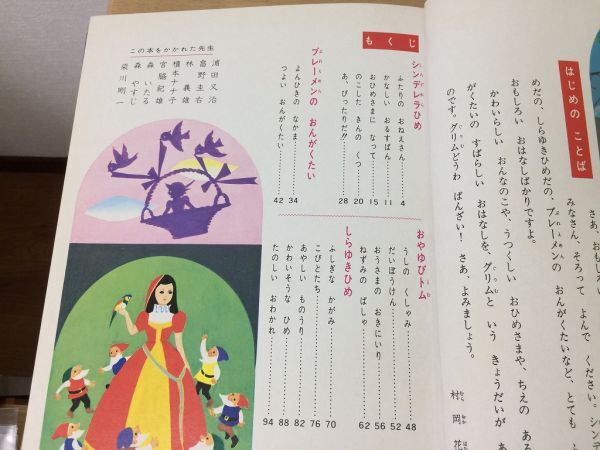 はじめの ことば
さあ、おもしろい
みなさん、そろって よんで ください。シンデ
めだの、しらゆきひめだの、ブレーメンの おんがくたいなど、とても
おもしろい おはなしばかりですよ。
かわいらしい おんなのこや、うつくしい おひめさまや、ちえの ある
がくたいの すばらしい おはなしを、グリムと いう きょうだいが
のです。グリムどうわ ばんざい! さあ、よみましょう。
村岡花
もくじ
シンデレラひめ
ふたりの おねえさん……4
かなしい おるすばん……11
おひめさまに なって……15
のこした きんの くつ……20
あ、ぴったりだ!!……28
ブレーメンの おんがくたい
よんひきの なかま……34
つよい おんがくたい……42
おやゆびトム
うしの くしゃみ……48
だいぼうけん……52
おうさまの おきにいり……56
ねずみの ばしゃ……62
しらゆきひめ
ふしぎな かがみ……70
こびとたち……76
あやしい ものうり……82
かわいそうな ひめ……88
たのしい おわかれ……94
この本をかかれた先生
浦田又治
畠野圭右
林義雄
槙本ナナ子
宮脇紀雄
森いたる
森やすじ
柴川剛一